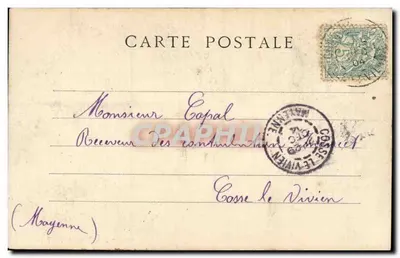 CARTE POSTALE
Monsieur Copal
Receveur des contributions
Cosse le Vivien
(Mayenne)
COSSE-LE-VIVIEN
MAYENNE